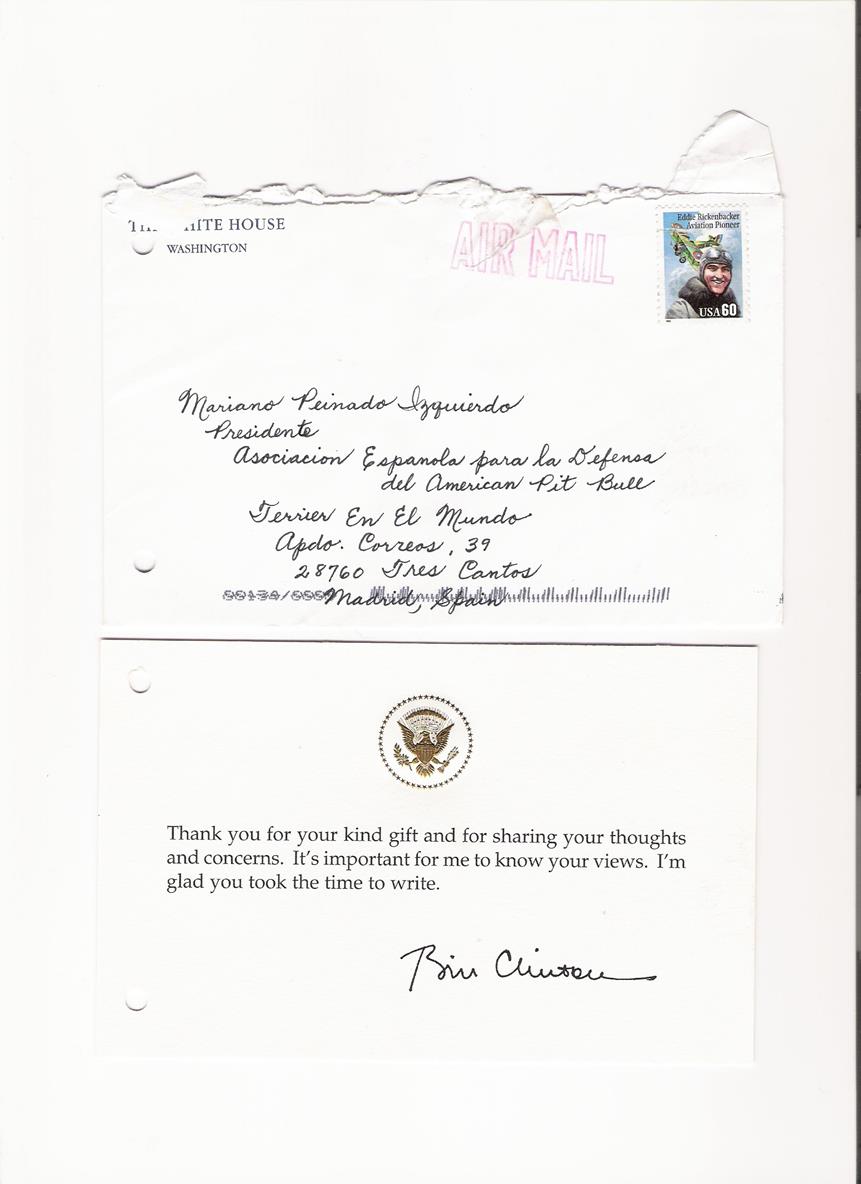 THE WHITE HOUSE
WASHINGTON
AIR MAIL
Eddie Rickenbacker
Aviation Pioneer
USA 60
Mariano Peinado Izquierdo
Presidente
Asociacion Espanola para la Defensa
del American Pit Bull
Terrier En El Mundo
Apdo. Correos, 39
28760 Tres Cantos
Madrid, Spain
Thank you for your kind gift and for sharing your thoughts
and concerns. It's important for me to know your views. I'm
glad you took the time to write.
Bill Clinton